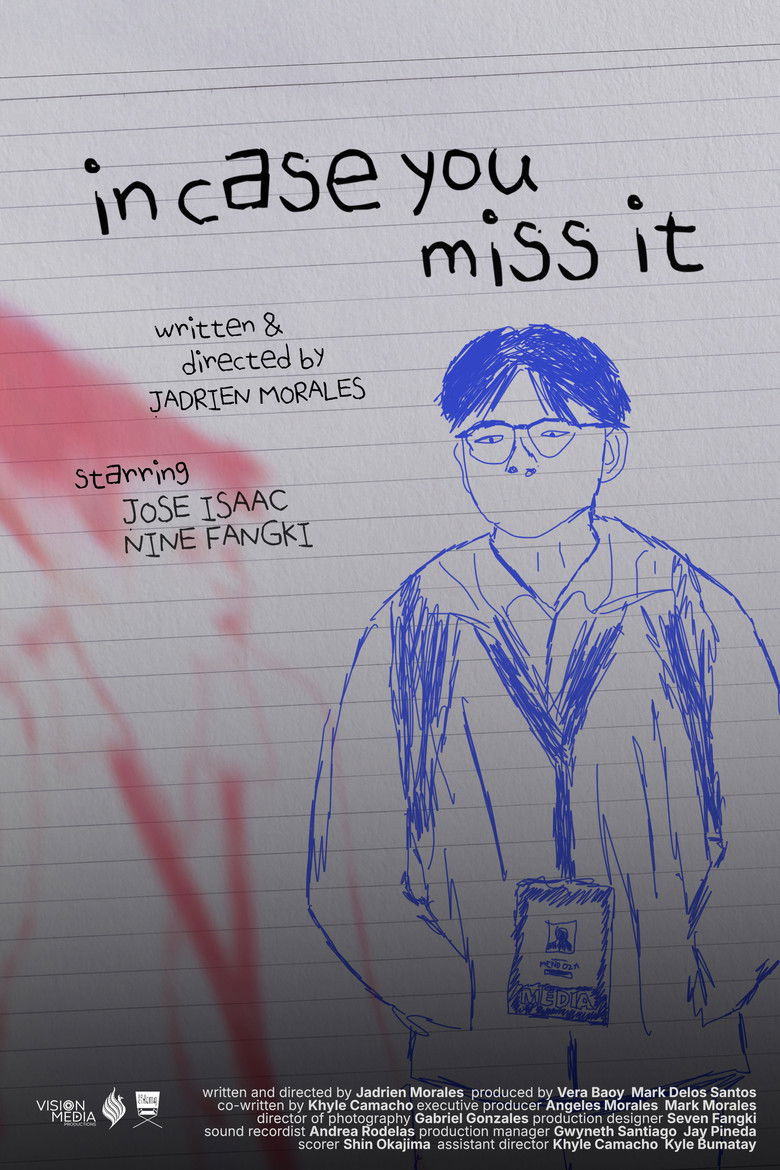 in case you
miss it
written &
directed by
JADRIEN MORALES
starring
JOSE ISAAC
NINE FANGKI
MENDOZA
MEDIA
VISION
MEDIA
PRODUCTIONS
written and directed by Jadrien Morales produced by Vera Baoy Mark Delos Santos
co-written by Khyle Camacho executive producer Angeles Morales Mark Morales
director of photography Gabriel Gonzales production designer Seven Fangki
sound recordist Andrea Rodelas production manager Gwyneth Santiago Jay Pineda
scorer Shin Okajima assistant director Khyle Camacho Kyle Bumatay